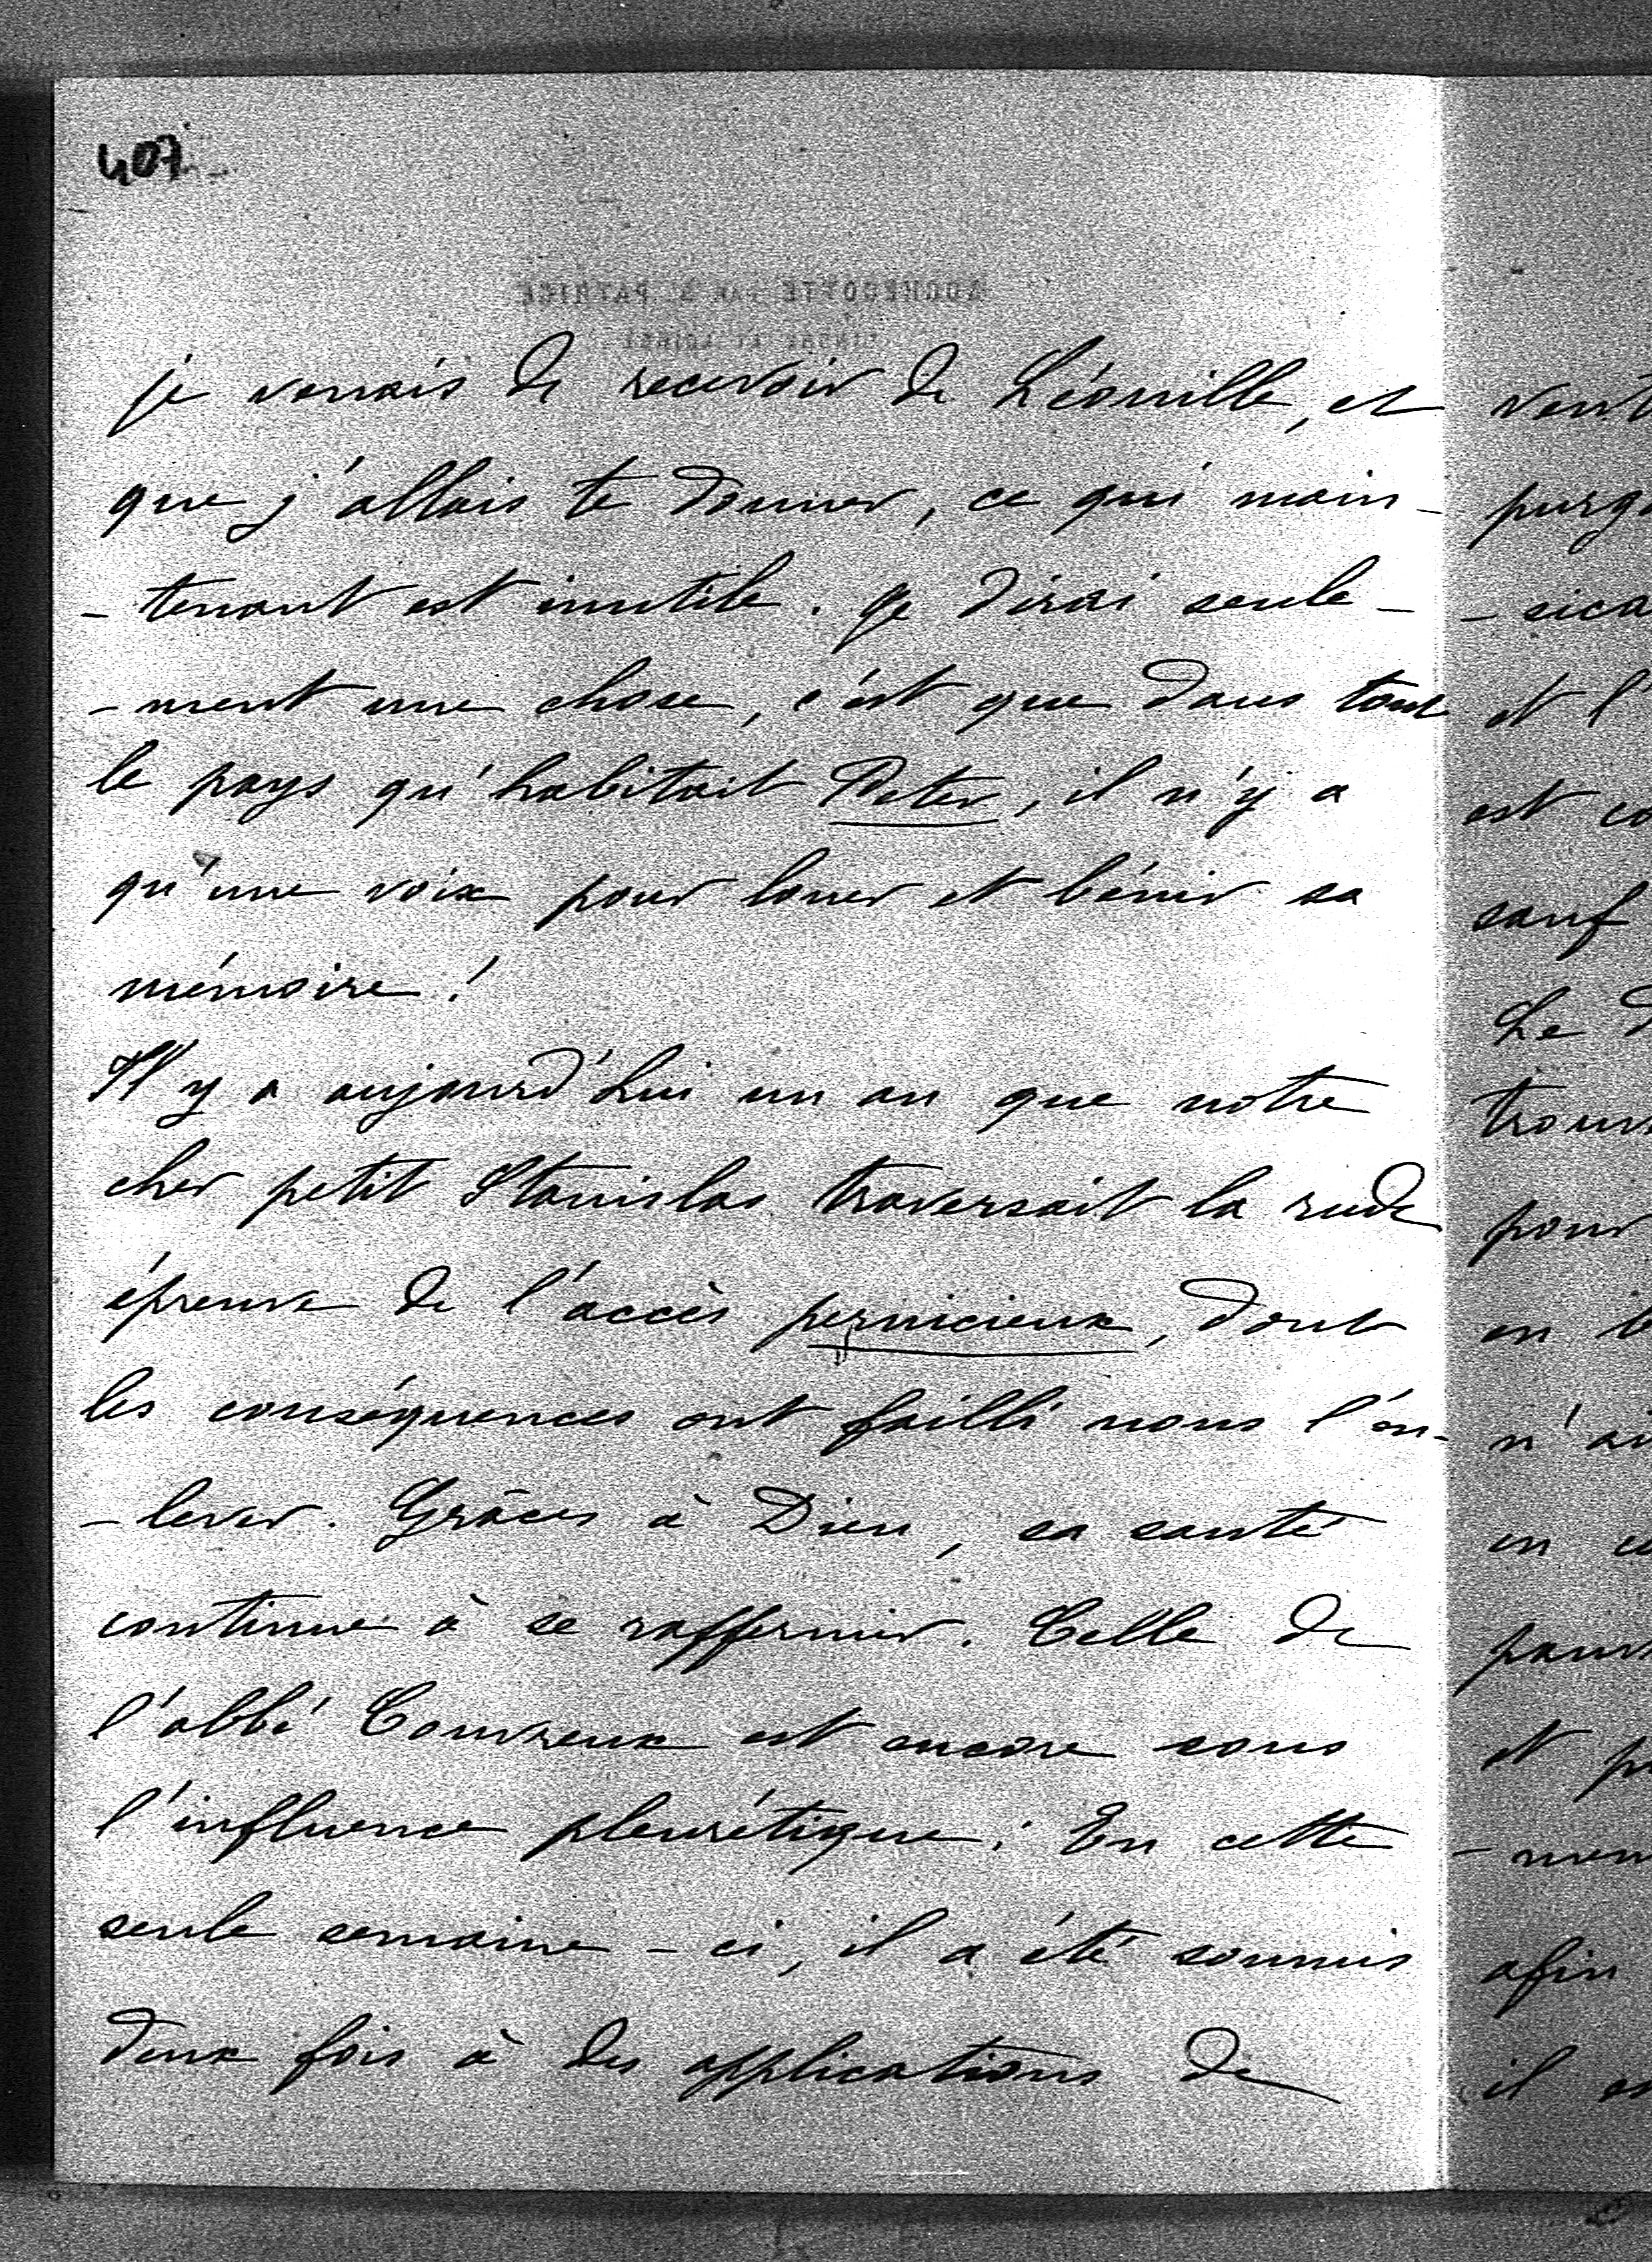 407
je venais de recevoir de Léonille, et
que j'allais te donner, ce qui main-
-tenant est inutile. Je dirai seule-
-ment une chose, c'est que dans tout
le pays qu'habitait Peter, il n'y a
qu'une voix pour louer et bénir sa
mémoire !
Il y a aujourd'hui un an que notre
cher petit Stanislas traversait la rude
épreuve de l'accès pernicieux, dont
les conséquences ont failli nous l'en-
-lever. Grâces à Dieu, sa santé
continue à se raffermir. Celle de
l'abbé Couvreux est encore sous
l'influence pleurétique : En cette
seule semaine-ci, il a été soumis
deux fois à des applications de
vent
purg
-sica
et l
est co
sauf
Le
trouv
pour
en
n'ai
en
pauv
et
-men
afin
il